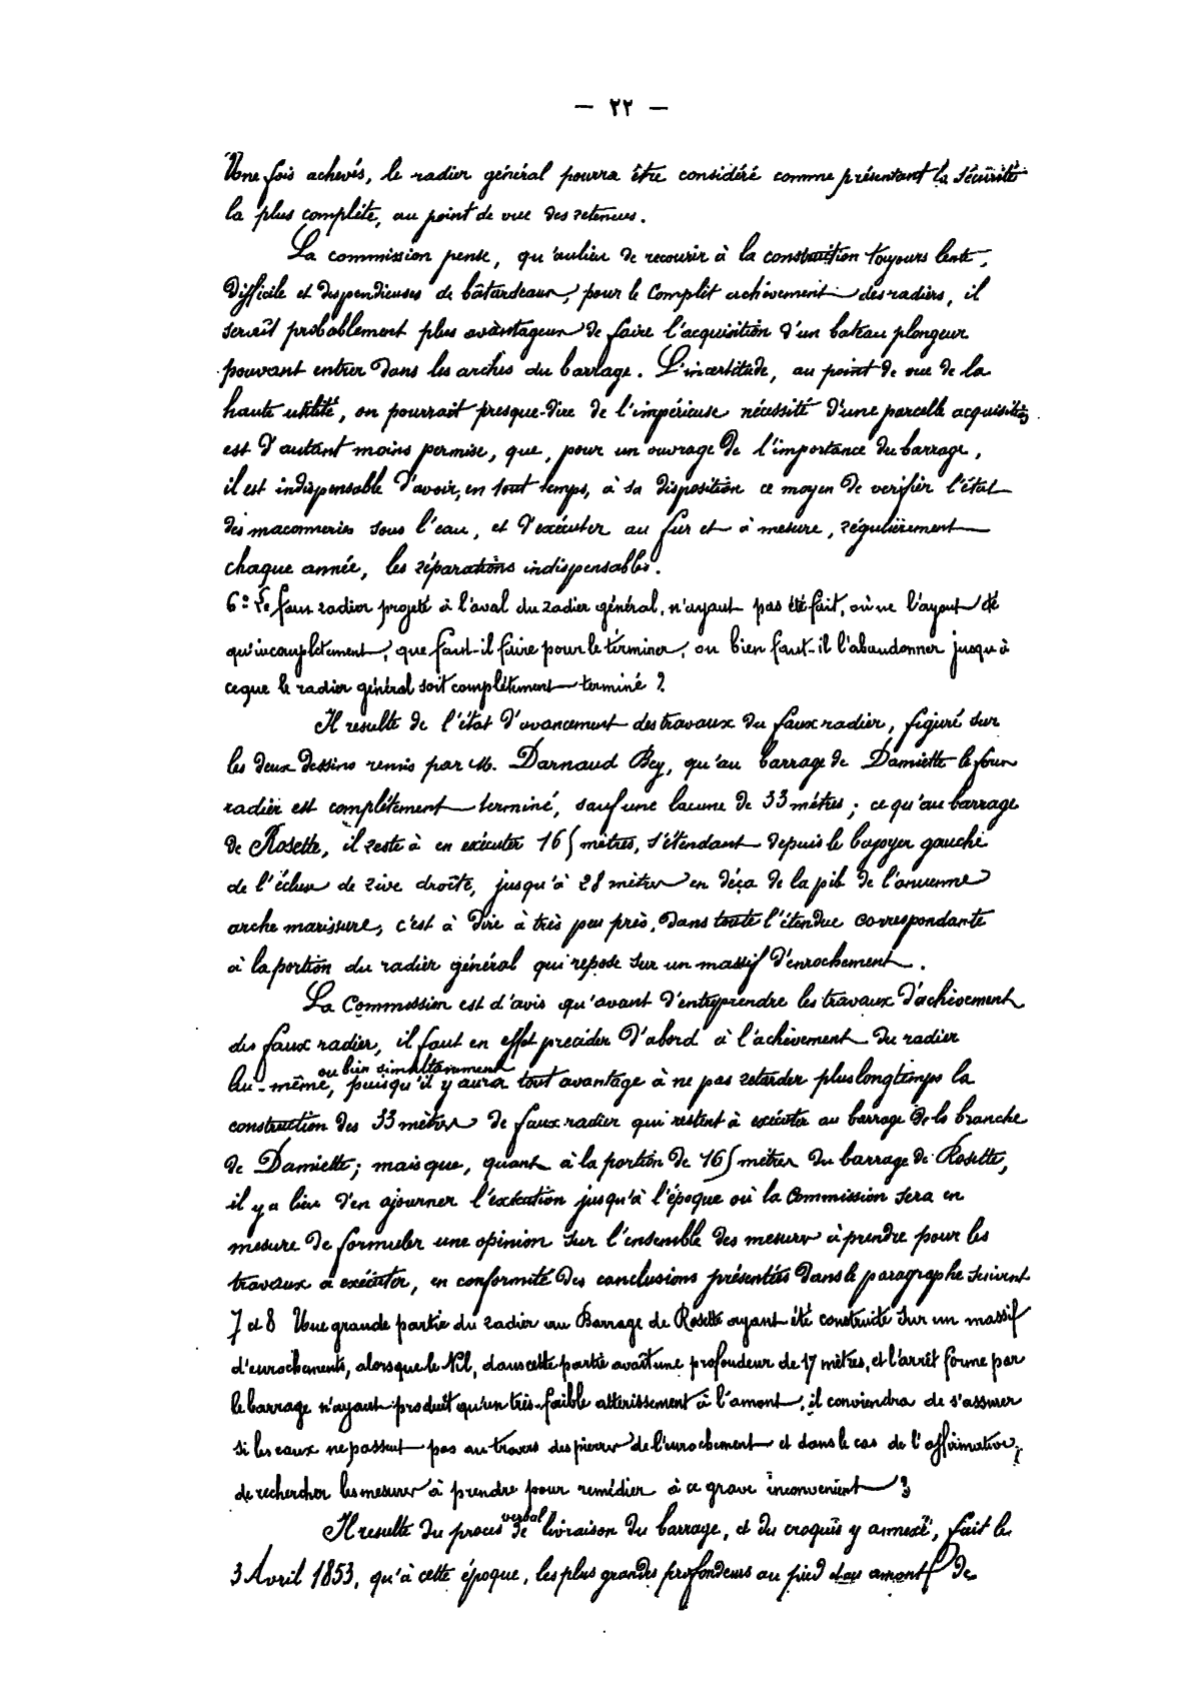 — ٢٢ —
Une fois achevés, le radier général pourra être considéré comme présentant la sécurité
la plus complète, au point de vue des retenues.
La commission pense, qu'aulieu de recourir à la construction toujours lente,
difficile et dispendieuses de bâtardeaux, pour le complet achèvement des radiers, il
serait probablement plus avantageux de faire l'acquisition d'un bateau plongeur
pouvant entrer dans les arches du barrage. L'incertitude, au point de vue de la
haute utilité, on pourrait presque-dire de l'impérieuse nécessité d'une parcelle acquisition
est d'autant moins permise, que, pour un ouvrage de l'importance du barrage,
il est indispensable d'avoir, en tout temps, à sa disposition ce moyen de verifier l'état
des maconneries sous l'eau, et d'exécuter au fur et à mesure, régulièrement
chaque année, les réparations indispensables.
6° Le faux radier projeté à l'aval du radier général, n'ayant pas été fait, où ne l'ayant été
qu'incomplètement, que faut-il faire pour le terminer, ou bien faut-il l'abandonner jusqu'à
ceque le radier général soit complètement terminé ?
Il resulte de l'état d'avancement des travaux du faux radier, figuré sur
les deux dessins remis par M. Darnaud Bey, qu'au barrage de Damiette le faux
radier est complètement terminé, sauf une lacune de 33 mètres ; ce qu'au barrage
de Rosette, il reste à en exécuter 165 mètres, s'étendant depuis le bajoyer gauche
de l'écluse de rive droite, jusqu'à 28 mètres en déça de la pile de l'ancienne
arche marissure, c'est à dire à très peu près, dans toute l'étendue correspondante
à la portion du radier général qui repose sur un massif d'enrochement.
La Commission est d'avis qu'avant d'entreprendre les travaux d'achèvement
des faux radier, il faut en effet procéder d'abord à l'achèvement du radier
ou bien simultanément
lui-même, puisqu'il y aura tout avantage à ne pas retarder plus longtemps la
construction des 33 mètres de faux radier qui restent à exécuter au barrage de la branche
de Damiette; mais que, quant à la portion de 165 mètres du barrage de Rosette,
il y a lieu d'en ajourner l'exécution jusqu'à l'époque où la Commission sera en
mesure de formuler une opinion sur l'ensemble des mesures à prendre pour les
travaux à exécuter, en conformité des conclusions présentées dans le paragraphe suivent
7 et 8 Une grande partie du radier au Barrage de Rosette ayant été construite sur un massif
d'enrochements, alorsque le Nil, dans cette partie avait une profondeur de 17 mètres, et l'arrêt forme par
le barrage n'ayant produit qu'un très-faible atterissement à l'amont, il conviendra de s'assurer
si les eaux ne passent pas au travers des pierres de l'enrochement et dans le cas de l'affirmative,
de rechercher les mesures à prendre pour remédier à ce grave inconvenient ?
Il resulte du procès verbal de livraison du barrage, et du croquis y annexé, fait le
3 Avril 1853, qu'à cette époque, les plus grandes profondeurs au pied amont de